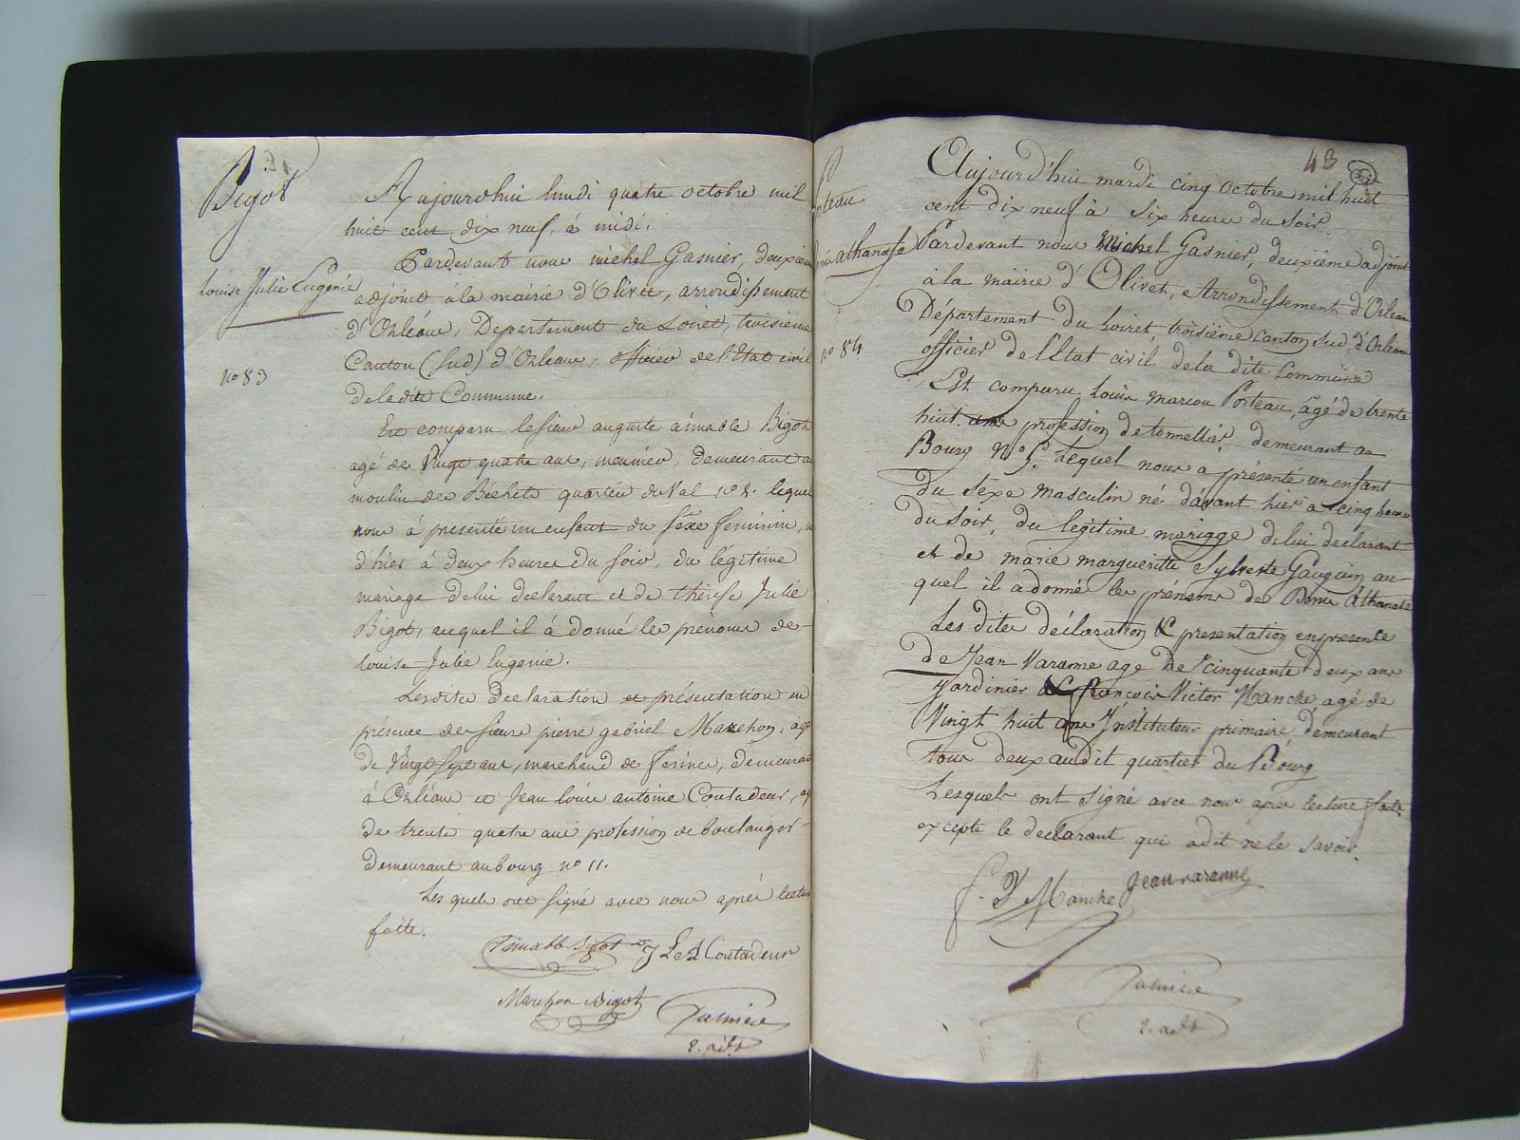 Bigot
Louise Julie Eugénie
no 83
Aujourdhui lundi quatre octobre mil
huit cent dix neuf, à midi.
Pardevant nous michel Gasnier, deuxième
adjoint à la mairie d'Olivet, arrondissement
d'Orléans, Departement du Loiret, troisieme
Canton (Sud) d'Orleans, officier de l'Etat civil
de la dite Commune.
Est comparu le sieur auguste aimable Bigot
agé de Vingt quatre ans, meunier, demeurant au
moulin des Béchets quartier du Val no 8. lequel
nous à presenté un enfant du séxe feminin,
d'hier à deux heures du soir, du légitime
mariage de lui declarant et de thérese Julie
Bigot, auquel il à donné les prénoms de
Louise Julie Eugenie.
Lesdites declaration et présentation en
présence des sieurs pierre gabriel Marchon, agé
de Vingt sept ans, marchand de farines, demeurant
à Orléans et Jean louis antoine Coutadeur, agé
de trente quatre ans profession de boulanger
demeurant au bourg no 11.
Les quels ont signé avec nous aprés lecture
faitte.
J L A Coutadeur
Marchon Bigot
Gasnier
2. adjt
43
Athanase
no 84
Aujourd'hui mardi cinq octobre mil huit
cent dix neuf à six heures du soir.
Pardevant nous Michel Gasnier, deuxième adjoint
à la mairie d'Olivet, Arrondissement d'Orleans
Département du Loiret troisième canton sud d'Orleans
officier de l'Etat civil de la dite Commune
Est comparu Louis marcou Poteau, âgé de trente
huit ans profession de tonnellier demeurant au
Bourg No 5. Lequel nous à présenté un enfant
du séxe masculin né d'avant hier à cinq heures
du soir, du legitime mariage de lui declarant
et de marie margueritte Sylvestre Gauguin au-
quel il a donné les prénoms de Athanase
Les dites déclaration & presentation en presence
de Jean Varanne agé de cinquante deux ans
Jardinier & françois Victor Manche agé de
Vingt huit ans Instituteur primaire, demeurant
tous deux audit quartier du Bourg
Lesquels ont signé avec nous après lecture faite
excepté le declarant qui a dit ne le savoir.
f. V Manche Jean varanne
Gasnier
2. adjt